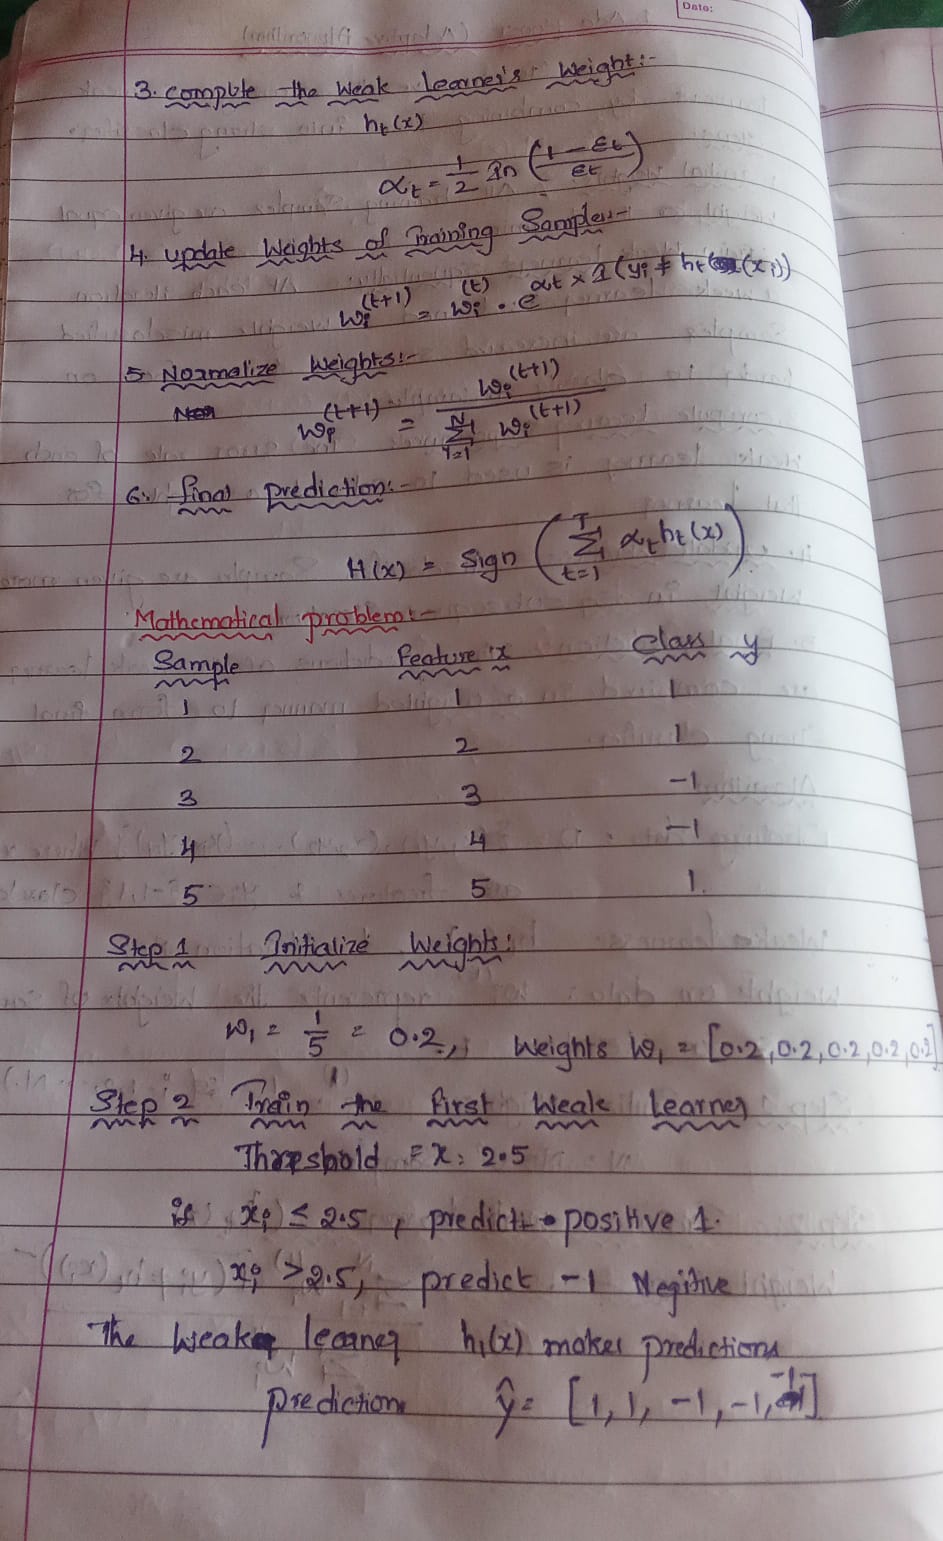 Date:
3. Compute the Weak Learner's Weight:-
ht(x)
αt = 1/2 ln (1 - Et / Et)
4. update Weights of Training Samples:-
wi^(t+1) = wi^(t) . e^αt × 1(yi ≠ ht(xi))
5. Normalize Weights:-
wi^(t+1) = wi^(t+1) / N∑i=1 wi^(t+1)
6. final prediction:-
H(x) = Sign (T∑t=1 αt ht(x))
Mathematical problem:-
Sample Feature x Class y
1 1 1
2 2 1
3 3 -1
4 4 -1
5 5 1.
Step 1 Initialize Weights:
w1 = 1/5 = 0.2, Weights w1 = [0.2, 0.2, 0.2, 0.2, 0.2]
Step 2 Train the first Weak Learner
Threshold = x: 2.5
is xi ≤ 2.5, predict positive 1.
xi > 2.5, predict -1 Negitive
The Weak learner h1(x) makes predictions
prediction ŷ = [1, 1, -1, -1, -1]